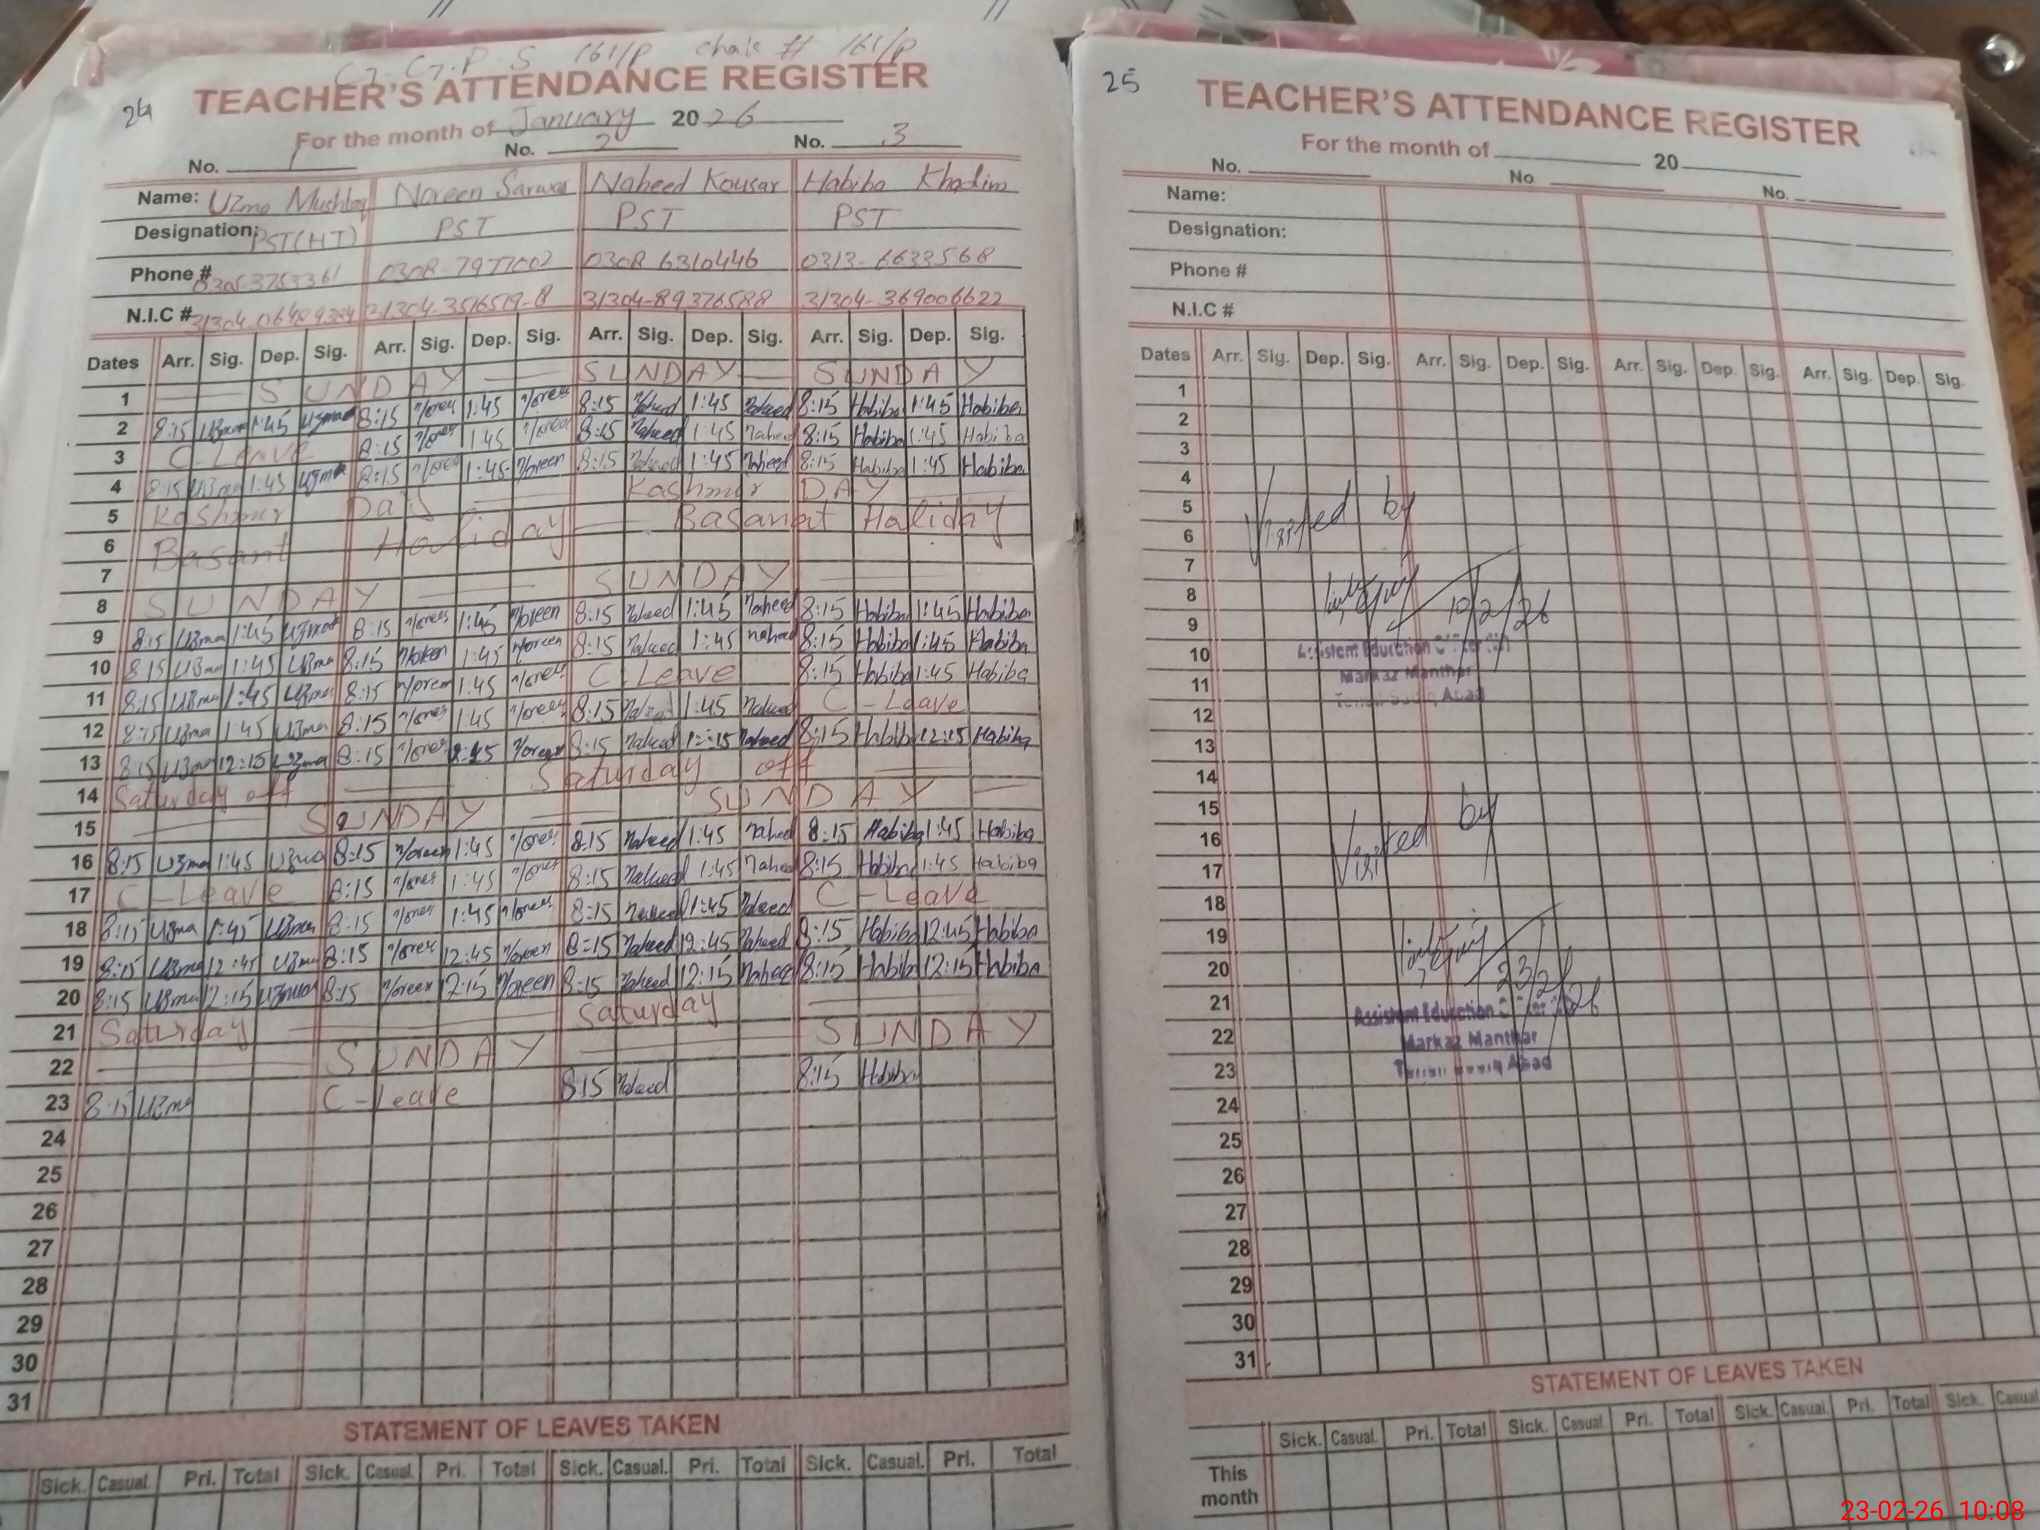 G.G.P.S 161/P chak # 161/P
24
TEACHER'S ATTENDANCE REGISTER
For the month of January 2026
No. 1 No. 2 No. 3
Name: Uzma Mushtaq Noreen Sarwar Naheed Kousar Habiba Khadim
Designation: PST(HT) PST PST PST
Phone # 0308-7977002 0308 6310446 0313-6633568
N.I.C # 31304-3516519-8 31304-89376588 31304-369006622
Dates Arr. Sig. Dep. Sig. Arr. Sig. Dep. Sig. Arr. Sig. Dep. Sig. Arr. Sig. Dep. Sig.
1 SUNDAY SUNDAY SUNDAY
2 8:15 Uzma 1:45 Uzma 8:15 Noreen 1:45 Noreen 8:15 Naheed 1:45 Naheed 8:15 Habiba 1:45 Habiba
3 C-Leave 8:15 Noreen 1:45 Noreen 8:15 Naheed 1:45 Naheed 8:15 Habiba 1:45 Habiba
4 8:15 Uzma 1:45 Uzma 8:15 Noreen 1:45 Noreen 8:15 Naheed 1:45 Naheed 8:15 Habiba 1:45 Habiba
5 Kashmir Day Kashmir DAY
6 Basant Holiday Basant Holiday
7
8 SUNDAY SUNDAY
9 8:15 Uzma 1:45 Uzma 8:15 Noreen 1:45 Noreen 8:15 Naheed 1:45 Naheed 8:15 Habiba 1:45 Habiba
10 8:15 Uzma 1:45 Uzma 8:15 Noreen 1:45 Noreen 8:15 Naheed 1:45 Naheed 8:15 Habiba 1:45 Habiba
11 8:15 Uzma 1:45 Uzma 8:15 Noreen 1:45 Noreen C-Leave 8:15 Habiba 1:45 Habiba
12 8:15 Uzma 1:45 Uzma 8:15 Noreen 1:45 Noreen 8:15 Naheed 1:45 Naheed C-Leave
13 8:15 Uzma 12:15 Uzma 8:15 Noreen Noreen 8:15 Naheed 12:15 Naheed 8:15 Habiba 12:15 Habiba
14 Saturday off Saturday off
15 SUNDAY SUNDAY
16 8:15 Uzma 1:45 Uzma 8:15 Noreen 1:45 Noreen 8:15 Naheed 1:45 Naheed 8:15 Habiba 1:45 Habiba
17 C-Leave 8:15 Noreen 1:45 Noreen 8:15 Naheed 1:45 Naheed 8:15 Habiba 1:45 Habiba
18 8:15 Uzma 1:45 Uzma 8:15 Noreen 1:45 Noreen 8:15 Naheed 1:45 Naheed C-Leave
19 8:15 Uzma 12:45 Uzma 8:15 Noreen 12:45 Noreen 8:15 Naheed 12:45 Naheed 8:15 Habiba 12:45 Habiba
20 8:15 Uzma 12:15 Uzma 8:15 Noreen 12:15 Noreen 8:15 Naheed 12:15 Naheed 8:15 Habiba 12:15 Habiba
21 Saturday Saturday
22 SUNDAY SUNDAY
23 8:15 Uzma C-Leave 8:15 Naheed 8:15 Habiba
24
25
26
27
28
29
30
31
STATEMENT OF LEAVES TAKEN
Sick. Casual. Pri. Total Sick. Casual. Pri. Total Sick. Casual. Pri. Total Sick. Casual. Pri. Total
25
TEACHER'S ATTENDANCE REGISTER
For the month of 20
No. No No.
Name:
Designation:
Phone #
N.I.C #
Dates Arr. Sig. Dep. Sig. Arr. Sig. Dep. Sig. Arr. Sig. Dep. Sig. Arr. Sig. Dep. Sig.
1
2
3
4
5 Visited by
6
7
8 10/2/26
9
10 Assistent Education
11 Markaz Manthar
12
13
14
15 Visited by
16
17
18
19
20 23/2/26
21 Assistent Education
22 Markaz Manthar
23 Abad
24
25
26
27
28
29
30
31
STATEMENT OF LEAVES TAKEN
Sick. Casual. Pri. Total Sick. Casual. Pri. Total Sick. Casual. Pri. Total Sick. Casual
This month
23-02-26 10:08